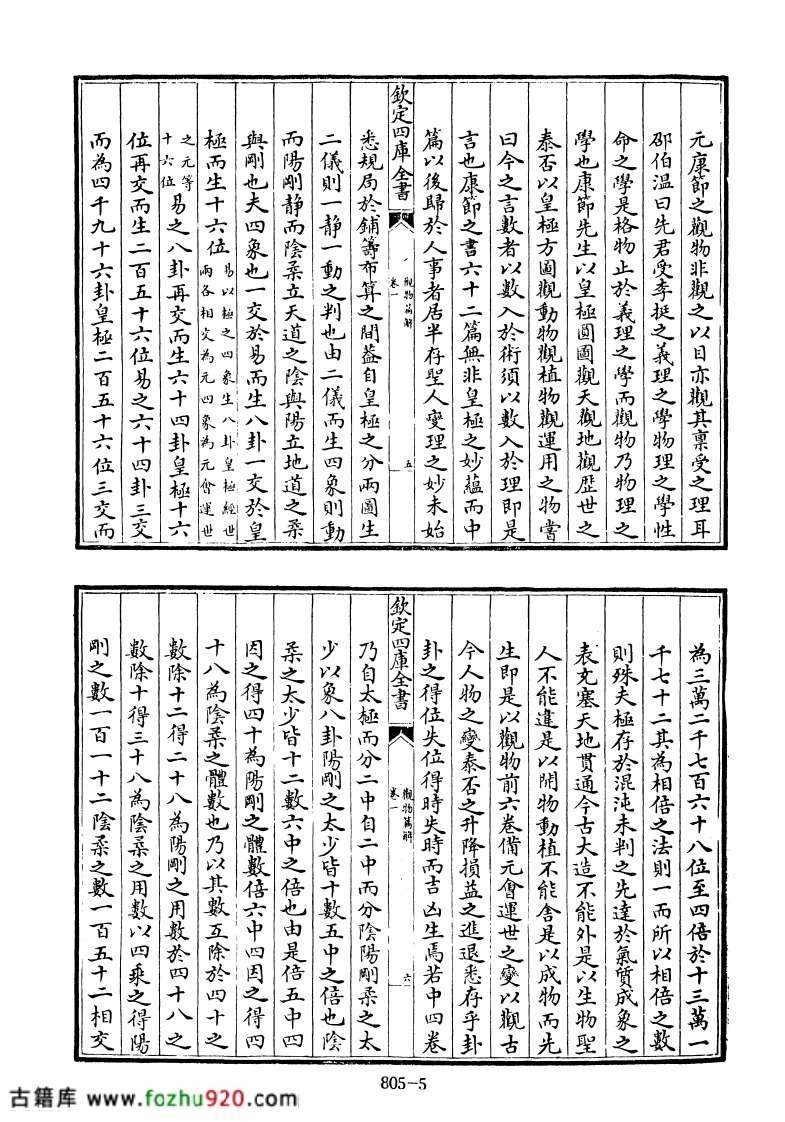 元康節之觀物非觀之以目亦觀其稟受之理耳
邵伯溫曰先君受李挺之義理之學物理之學性
命之學是格物止於義理之學而觀物乃物理之
學也康節先生以皇極圓圖觀天觀地觀歷世之
泰否以皇極方圖觀動物觀植物觀運用之物嘗
曰今之言數者以數入於術須以數入於理即是
言也康節之書六十二篇無非皇極之妙蘊而中
篇以後歸於人事者居半存聖人變理之妙未始
欽定四庫全書
觀物篇解
卷一
五
悉規局於鋪籌布算之間葢自皇極之分兩圖生
二儀則一静一動之判也由二儀而生四象則動
而陽剛静而陰柔立天道之陰與陽立地道之柔
與剛也夫四象也一交於易而生八卦一交於皇
極而生十六位易以極之四象生八卦皇極經世
兩各相交為元四象為元會運世
之元等
十六位
易之八卦再交而生六十四卦皇極十六
位再交而生二百五十六位易之六十四卦三交
而為四千九十六卦皇極二百五十六位三交而
為三萬二千七百六十八位至四倍於十三萬一
千七十二其為相倍之法則一而所以相倍之數
則殊夫極存於混沌未判之先達於氣質成象之
表充塞天地貫通今古大造不能外是以生物聖
人不能違是以開物動植不能舍是以成物而先
生即是以觀物前六卷備元會運世之變以觀古
今人物之變泰否之升降損益之進退悉存乎卦
卦之得位失位得時失時而吉凶生焉若中四卷
欽定四庫全書
觀物篇解
卷一
六
乃自太極而分二中自二中而分陰陽剛柔之太
少以象八卦陽剛之太少皆十數五中之倍也陰
柔之太少皆十二數六中之倍也由是倍五中四
因之得四十為陽剛之體數倍六中四因之得四
十八為陰柔之體數也乃以其數互除於四十之
數除十二得二十八為陽剛之用數於四十八之
數除十得三十八為陰柔之用數以四乘之得陽
剛之數一百一十二陰柔之數一百五十二相交
805-5
古籍库 www.fozhu920.com